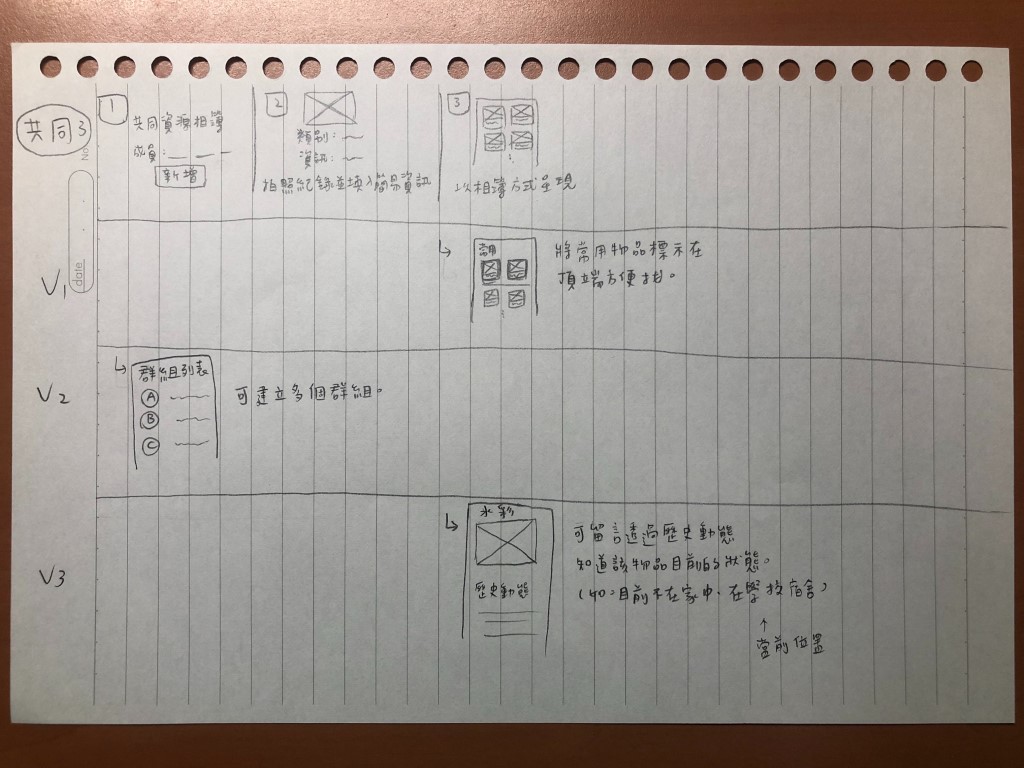 共同3
No
date
1
共同資源相簿
成員:
新增
2
類別:
資訊:
拍照紀錄並填入簡易資訊
3
以相簿方式呈現
V1
常用
將常用物品標示在
頂端方便找。
V2
群組列表
A
B
C
可建立多個群組。
V3
水彩
歷史動態
可留言透過歷史動態
知道該物品目前的狀態。
(如:目前不在家中、在學校宿舍)
↑
當前位置